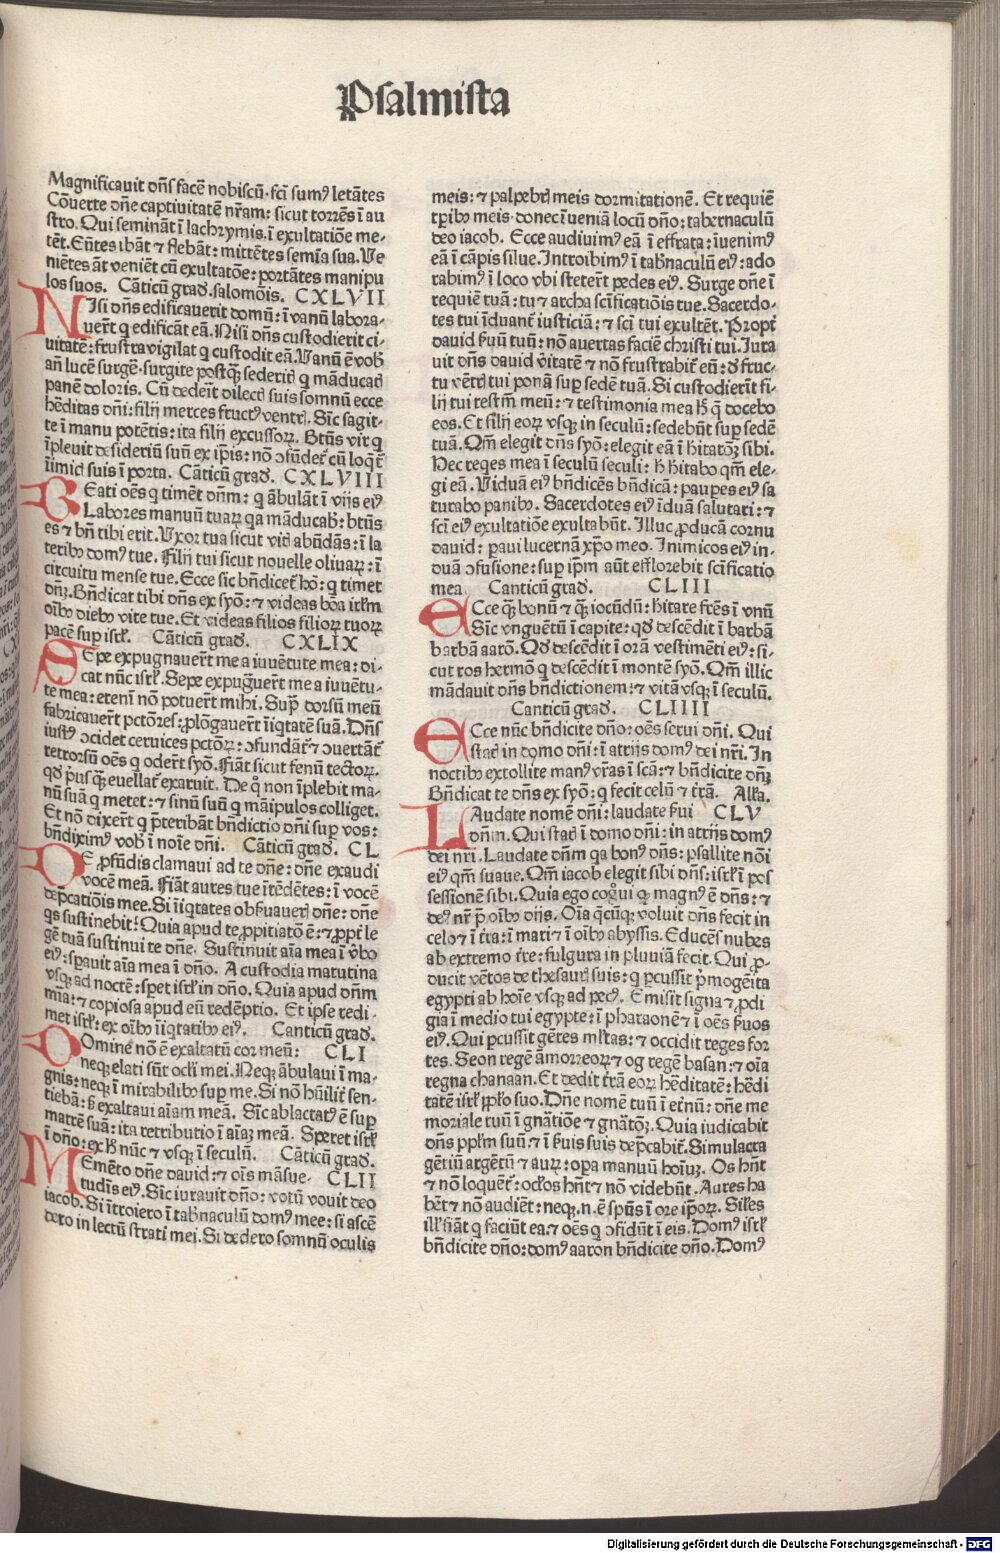 Psalmista
Magnificavit dñs facẽ nobiscũ. fcĩ sumꝰ letãtes
Cõuerte dñe captiuitatẽ nr̃am: sicut torrẽs ĩ au
stro. Qui seminãt ĩ lachrymis. ĩ exultatiõe me-
tẽt. Eũtes ibãt ⁊ flebãt: mittẽtes semĩa sua. Ve
niẽtes ãt veniẽt cũ exultatõe: portãtes manipu
los suos. Cãticũ grad̃. salomõis. CXLVII
NIsi dñs edificauerit domũ: ĩ vanũ labora-
uer̃t q edificãt eã. Nisi dñs custodierit ci-
uitatẽ: frustra vigilat q custodit eã. Vanũ ẽ vob̃
añ lucẽ surgẽ. surgite postq̃ꝫ sederit̃ q mãducat̃
panẽ doloris. Cũ dedeĩt dilect̃ suis somnũ ecce
hẽditas dñi: filij merces fructꝰ ventr̃. Sic̃ sagit-
te ĩ manu potẽtis: ita filij excussoꝝ. Bt̃us vir q
ĩpleuit desideriũ suũ ex ip̃is: nõ ↄfũdet̃ cũ loq̃t̃
ĩimic̃ suis ĩ porta. Cãticũ grad̃. CXLVIII
BEati oẽs q timẽt dñm: q ãbulãt ĩ vijs eiꝰ
Labores manuũ tuaꝝ qa mãducab̃: bt̃us
es ⁊ bñ tibi erit. Vxor tua sicut vit̃ abũdãs: ĩ la
terib̃ domꝰ tue. Filij tui sicut nouelle oliuaꝝ: ĩ
circuitu mense tue. Ecce sic bñdicet̃ hõ: q timet
dñꝫ. Bñdicat tibi dñs ex syõ: ⁊ videas bõa ierl̃m
oĩb̃ dieb̃ vite tue. Et videas filios filioꝝ tuoꝝ
pacẽ sup isrl̃. Cãticũ grad̃. CXLIX
SEpe expugnauer̃t me a iuuẽtute mea: di-
cat nũc isrl̃. Sepe expug̃uer̃t me a iuuẽtu-
te mea: etenĩ nõ potuer̃t mihi. Sup̃ dorsũ meũ
fabricauer̃t pctõres: ꝓlõgauer̃t ĩiq̃tatẽ suã. Dñs
iustꝰ ↄcidet ceruices pctõꝝ: ↄfundãt̃ ⁊ ↄuertãt̃
retrorsũ oẽs q oder̃t syõ. Fiãt sicut fenũ tectoꝝ.
qd̃ p̃usq̃ꝫ euellat̃ exaruit. De q̃ non ĩplebit ma-
nũ suã q metet: ⁊ sinũ suũ q mãipulos colliget.
Et nõ dixer̃t q p̃teribãt bñdictio dñi sup vos:
bñdiximꝰ vob̃ ĩ noĩe dñi. Cãticũ grad̃. CL
DE ꝓfũdis clamaui ad te dñe: dñe exaudi
vocẽ meã. Fiãt aures tue ĩtẽdẽtes: ĩ vocẽ
dep̃catiõis mee. Si ĩiq̃tates obẜuauer̃ dñe: dñe
qs sustinebit: Quia apud te ꝓpitiatõ ẽ: ⁊ ꝓpt̃ le
gẽ tuã sustinui te dñe. Sustinuit aĩa mea ĩ v̾bo
eiꝰ: sp̃auit aĩa mea ĩ dño. A custodia matutina
vsqꝫ ad noctẽ: sper̃et isrl̃ in dño. Quia apud dñm
mĩa: ⁊ copiosa apud eũ redẽptio. Et ipse redi-
met isrl̃: ex oĩb̃ ĩiq̃tatib̃ eiꝰ. Canticũ grad̃.
DOmine nõ ẽ exaltatũ cor meũ: CLI
neqꝫ elati sũt ocl̃i mei. Neqꝫ ãbulaui ĩ ma-
gnis: neqꝫ ĩ mirabilib̃ sup me. Si nõ hũilit̃ sen-
tiebã: s̃ exaltaui aĩam meã. Sic̃ ablactatꝰ ẽ sup
matrẽ suã: ita retributio ĩ aĩaꝫ meã. Speret isrl̃
ĩ dño: ex h̃ nũc ⁊ vsqꝫ ĩ seculũ. Cãticũ grad̃.
MEmẽto dñe dauid: ⁊ oĩs mãsue- CLII
tudĩs eiꝰ. Sic̃ iurauit dño: votũ vouit deo
iacob. Si ĩtroiero ĩ tab̃naculũ domꝰ mee: si ascẽ
dero in lectũ strati mei. Si dedero somnũ oculis
meis: ⁊ palpebr̃ meis dormitationẽ. Et requiẽ
tp̃ib̃ meis. donec ĩueniã locũ dño: tabernaculũ
deo iacob. Ecce audiuimꝰ eã ĩ effrata: ĩuenimꝰ
eã ĩ cãpis silue. Introibimꝰ ĩ tab̃naculũ eiꝰ: ado
rabimꝰ ĩ loco vbi steter̃t pedes eiꝰ. Surge dñe ĩ
requiẽ tuã: tu ⁊ archa scĩficatiõis tue. Sacerdo-
tes tui ĩduant̃ iusticiã: ⁊ scĩ tui exultẽt. Propt̃
dauid ẜuũ tuũ: nõ auertas faciẽ christi tui. Iura
uit dñs dauid v̾itatẽ ⁊ nõ frustrabit̃ eũ: d̃ fruc-
tu vẽtr̃ tui ponã sup sedẽ tuã. Si custodierĩt fi-
lij tui testm̃ meũ: ⁊ testimonia mea h̃ q̃ docebo
eos. Et filij eoꝝ vsqꝫ in seculũ: sedebũt sup sedẽ
tuã. Qm̃ elegit dñs syõ: elegit eã ĩ h̃itatõꝫ sibi.
Hec reqes mea ĩ seculũ seculi: h̃ h̃itabo qm̃ ele-
gi eã. Viduã eiꝰ bñdicẽs bñdicã: paupes eiꝰ sa
turabo panib̃. Sacerdotes eiꝰ ĩduã salutari: ⁊
scĩ eiꝰ exultatiõe exultabũt. Illuc ꝓducã cornu
dauid: paui lucernã xp̃o meo. Inimicos eiꝰ in-
duã ↄfusione: sup ip̃m aũt efflorebit scĩficatio
mea. Canticũ grad̃. CLIII
ECce q̃ꝫ bonũ ⁊ q̃ꝫ iocũdũ: h̃itare fr̃es ĩ vnũ
Sic̃ vnguẽtũ ĩ capite: qd̃ descẽdit ĩ barbã
barbã aarõ. Qd̃ descẽdit ĩ orã vestimẽti eiꝰ: si-
cut ros hermõ q descẽdit ĩ montẽ syõ. Qm̃ illic
mãdauit dñs bñdictionem: ⁊ vitã vsqꝫ ĩ seculũ.
Canticũ grad̃. CLIIII
ECce nũc bñdicite dño: oẽs serui dñi. Qui
stat̃ in domo dñi: ĩ atrijs domꝰ dei nr̃i. In
noctib̃ extollite manꝰ vr̃as ĩ scã: ⁊ bñdicite dñꝫ
Bñdicat te dñs ex syõ: q fecit celũ ⁊ t̃rã. All̃a.
LAudate nomẽ dñi: laudate ẜui CLV
dñm. Qui stat̃ ĩ domo dñi: in atrijs domꝰ
dei nr̃i. Laudate dñm qa bonꝰ dñs: psallite nõi
eiꝰ qm̃ suaue. Qm̃ iacob elegit sibi dñs: isrl̃ ĩ pos
sessionẽ sibi. Quia ego cog̃ui qꝫ magnꝰ ẽ dñs: ⁊
deꝰ nr̃ p̃ oĩb̃ dijs. Oĩa q̃cũqꝫ voluit dñs fecit in
celo ⁊ ĩ t̃ra: ĩ mari ⁊ ĩ oĩb̃ abyssis. Educẽs nubes
ab extremo t̃re: fulgura in pluuiã fecit. Qui ꝓ-
ducit vẽtos de thesaur̃ suis: q pcussit p̃mogẽita
egypti ab hoĩe vsqꝫ ad pecꝰ. Emisit signa ⁊ ꝓdi
gia ĩ medio tui egypte: ĩ pharaonẽ ⁊ ĩ oẽs ẜuos
eiꝰ. Qui pcussit gẽtes ml̃tas: ⁊ occidit reges for
tes. Seon regẽ ãmorreoꝝ ⁊ og regẽ basan: ⁊ oĩa
regna chanaan. Et dedit t̃rã eoꝝ hẽditatẽ: hẽdi
tatẽ isrl̃ pp̃lo suo. Dñe nomẽ tuũ ĩ et̃nũ: dñe me
moriale tuũ ĩ gñatiõe ⁊ gñatõꝫ. Quia iudicabit
dñs ppl̃m suũ: ⁊ ĩ ẜuis suis dep̃cabit̃. Simulacra
gẽtiũ argẽtũ ⁊ auꝝ: opa manuũ hoĩuꝫ. Os hñt
⁊ nõ loquẽt̃: ocl̃os hñt ⁊ nõ videbũt. Aures ha
bẽt ⁊ nõ audiẽt: neqꝫ. n. ẽ spũs ĩ ore ip̃oꝝ. Sil̃es
ill̃ fiãt q faciũt ea: ⁊ oẽs q ↄfidũt ĩ eis. Domꝰ isrl̃
bñdicite dño: domꝰ aaron bñdicite dño. Domꝰ
Digitalisierung gefördert durch die Deutsche Forschungsgemeinschaft - DFG